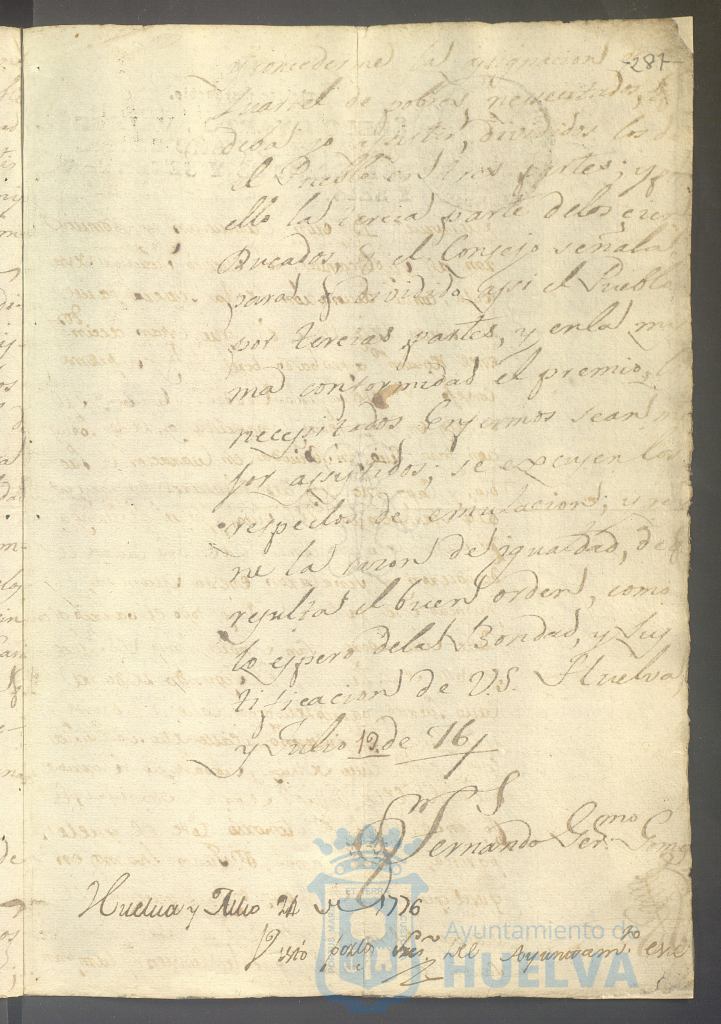 287
concederme la asignacion
Quartel de pobres necesitados,
deba yo assistir, dividiendo los
el Pueblo en tres partes; y p
ello la tercia parte delos
Ducados q el Consejo señala
para dividido assi el Pueblo
por tercias partes, y enla mis
ma conformidad el premio;
necesitados Enfermos sean m
jor assistidos; se excusen los
respectos de emulacion; y
ne la razon de igualdad, de
resulta el buen orden, como
lo espero dela Bondad, y Jus
tificacion de V.S. Huelva
y Julio 19 de 76
Sr
Fernando Germo Gomez
Huelva y Julio 24 de 1776
Visto pr los Sres del Ayuntamto en
Ayuntamiento de
HUELVA